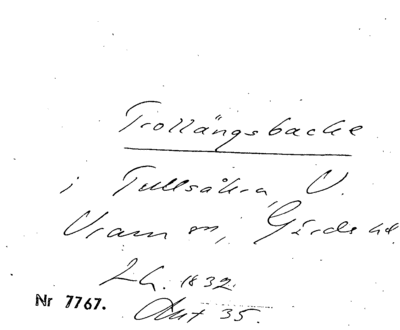 Trollängsbacke
i Tullsåkra, V.
Vram sn, Gärds hd
LH. 1832.
Akt 35.
Nr 7767.